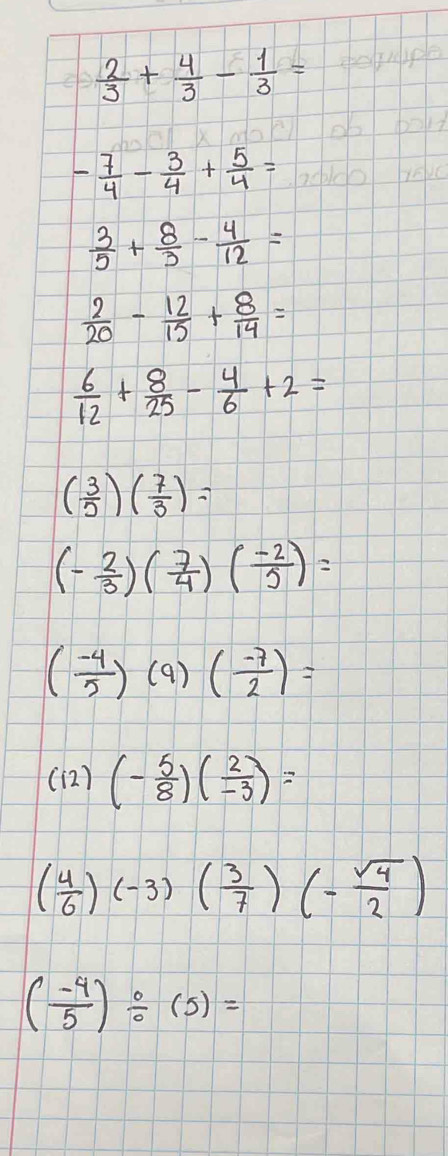 2/3 + 4/3 - 1/3 =
- 7/4 - 3/4 + 5/4 =
3/5 + 8/5 - 4/12 =
2/20 - 12/15 + 8/14 =
6/12 + 8/25 - 4/6 + 2 =
(3/5) (7/3) =
(- 2/3) (7/4) (-2/5) =
(-4/5) (9) (-7/2) =
(12) (- 5/8) (2/-3) =
(4/6) (-3) (3/7) (- √4/2)
(-4/5) ÷ (5) =